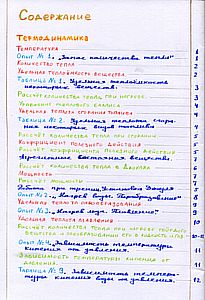 Содержание
Термодинамика
Температура 1
Опыт №1. „Запас количества тепла" 1
Количество тепла 2
Удельная теплоёмкость вещества 2
Таблица №1. Удельная теплоёмкость
некоторых веществ. 3
Рассчёт количества тепла при нагреве 3
Уравнение теплового баланса 3
Удельная теплота сгорания топлива 4
Таблица №2. Удельная теплота сгора-
ния некоторых видов топлива 4
Рассчёт количества тепла при сгорании 4
Коэффициент Полезного Действия 5
Рассчёт коэффициента Полезного Действия 5
Агрегатные состояния вещества.
Рассчёт количества тепла в
Мощность
Рассчёт мощности
Работа при трении, Установка Джоуля
Опыт №2. „Нагрев воды. Парообразование"
Удельная теплота парообразования 9
Опыт №3. „Нагрев льда. Плавление" 9
Удельная теплота плавления 10
Рассчёт количества тепла при
вещества и 10-11
Опыт №4. Зависимость температуры
кипения от давления. 11
Зависимость температуры кипения от
давления 11
Таблица №3. Зависимость темпера-
туры кипения воды от давления. 12